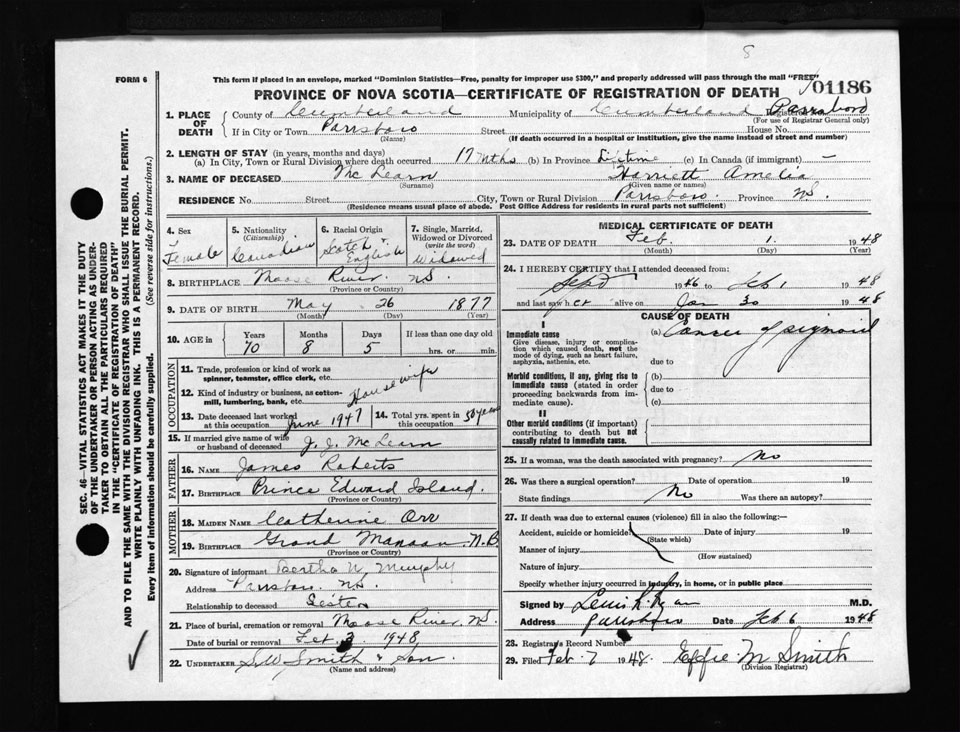 S
FORM 6
This form if placed in an envelope, marked "Dominion Statistics—Free, penalty for improper use $300," and properly addressed will pass through the mail "FREE"
PROVINCE OF NOVA SCOTIA—CERTIFICATE OF REGISTRATION OF DEATH
01186
1. PLACE OF DEATH County of Cumberland Municipality of Cumberland Parrsboro
(For use of Registrar General only)
If in City or Town Parrsboro Street House No.
(Name) (If death occurred in a hospital or institution, give the name instead of street and number)
2. LENGTH OF STAY (in years, months and days)
(a) In City, Town or Rural Division where death occurred 17 Mths (b) In Province Lifetime (c) In Canada (if immigrant) —
3. NAME OF DECEASED McLearn Harriett Amelia
(Surname) (Given name or names)
RESIDENCE No. Street City, Town or Rural Division Parrsboro Province N.S.
(Residence means usual place of abode. Post Office Address for residents in rural parts not sufficient)
4. Sex 5. Nationality (Citizenship) 6. Racial Origin 7. Single, Married, Widowed or Divorced (write the word)
Female Canadian Scotch & English Widowed
8. BIRTHPLACE Moose River N.S.
(Province or Country)
9. DATE OF BIRTH May 26 1877
(Month) (Day) (Year)
10. AGE in Years Months Days If less than one day old
70 8 5 hrs. or min.
OCCUPATION
11. Trade, profession or kind of work as spinner, teamster, office clerk, etc.
12. Kind of industry or business, as cotton-mill, lumbering, bank, etc. Housewife
13. Date deceased last worked at this occupation June 1947 14. Total yrs. spent in this occupation 50 years
15. If married give name of wife or husband of deceased J. J. McLearn
FATHER
16. NAME James Roberts
17. BIRTHPLACE Prince Edward Island.
(Province or Country)
MOTHER
18. MAIDEN NAME Catherine Orr
19. BIRTHPLACE Grand Manaan. N.B
(Province or Country)
20. Signature of informant Bertha N. Murphy
Address Parrsboro N.S.
Relationship to deceased Sister
21. Place of burial, cremation or removal Moose River, N.S.
Date of burial or removal Feb. 3 1948
22. UNDERTAKER S.W. Smith & Son.
(Name and address)
MEDICAL CERTIFICATE OF DEATH
23. DATE OF DEATH Feb. 1. 1948
(Month) (Day) (Year)
24. I HEREBY CERTIFY that I attended deceased from:
Sept 1946 to Feb 1 1948
and last saw her alive on Jan 30 1948
CAUSE OF DEATH
I
Immediate cause (a) Cancer of sigmoid
Give disease, injury or complication which caused death, not the mode of dying, such as heart failure, asphyxia, asthenia, etc. due to
Morbid conditions, if any, giving rise to immediate cause (stated in order proceeding backwards from immediate cause). (b) due to (c)
II
Other morbid conditions (if important) contributing to death but not causally related to immediate cause.
25. If a woman, was the death associated with pregnancy? No
26. Was there a surgical operation? Date of operation 19
State findings No Was there an autopsy?
27. If death was due to external causes (violence) fill in also the following:—
Accident, suicide or homicide? Date of injury 19
(State which)
Manner of injury
(How sustained)
Nature of injury
Specify whether injury occurred in industry, in home, or in public place
Signed by M.D.
Address Parrsboro Date Feb 6 1948
28. Registrars Record Number
29. Filed Feb 7 1948. Effie M Smith
(Division Registrar)
SEC. 46—VITAL STATISTICS ACT MAKES IT THE DUTY
OF THE UNDERTAKER OR PERSON ACTING AS UNDER-
TAKER TO OBTAIN ALL THE PARTICULARS REQUIRED
IN THE "CERTIFICATE OF REGISTRATION OF DEATH"
AND TO FILE THE SAME WITH THE DIVISION REGISTRAR WHO SHALL ISSUE THE BURIAL PERMIT.
WRITE PLAINLY WITH UNFADING INK. THIS IS A PERMANENT RECORD.
Every item of information should be carefully supplied. (See reverse side for instructions.)